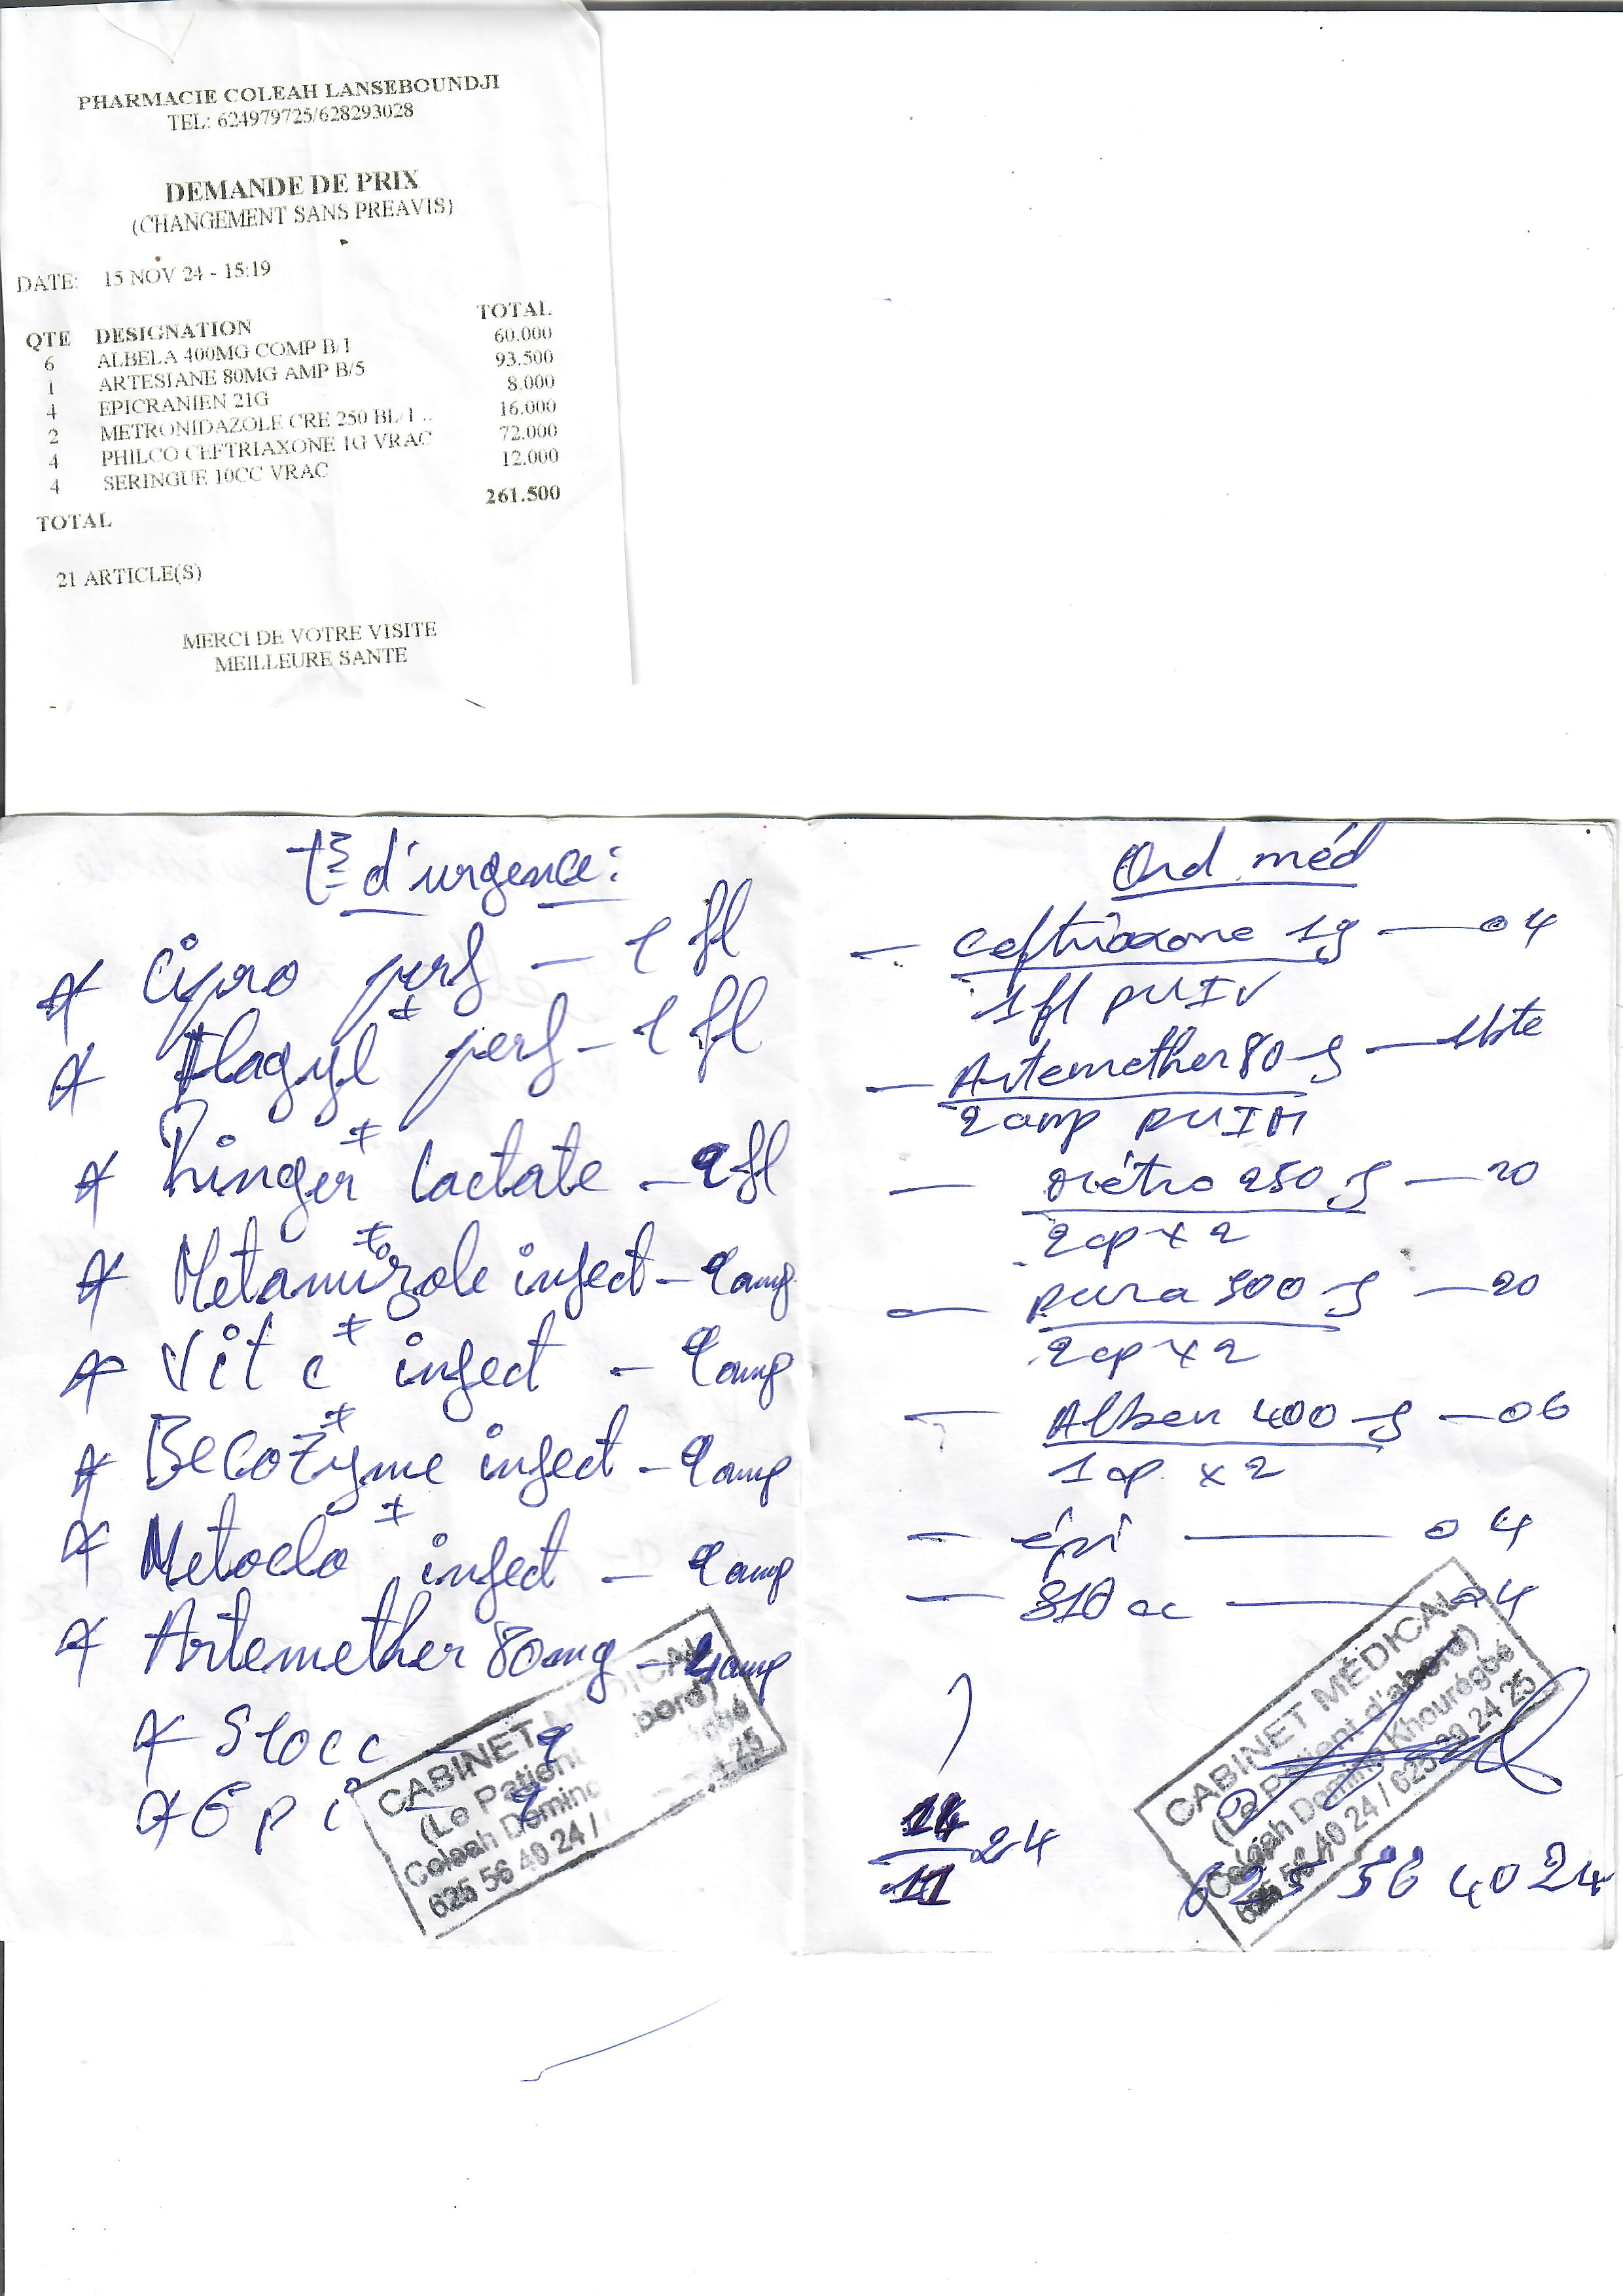 PHARMACIE COLEAH LANSEBOUNDJI
TEL: 624979725/628293028
DEMANDE DE PRIX
(CHANGEMENT SANS PREAVIS)
DATE: 15 NOV 24 - 15:19
QTE DESIGNATION TOTAL
6 ALBELA 400MG COMP B/1 60.000
1 ARTESIANE 80MG AMP B/5 93.500
4 EPICRANIEN 21G 8.000
2 METRONIDAZOLE CRE 250 BL/1 .. 16.000
4 PHILCO CEFTRIAXONE 1G VRAC 72.000
4 SERINGUE 10CC VRAC 12.000
TOTAL 261.500
21 ARTICLE(S)
MERCI DE VOTRE VISITE
MEILLEURE SANTE
d'urgence:
* Cipro perf - 1 fl
±
* Flagyl perf - 1 fl
±
* Ringer lactate - 2 fl
±
* Metamizole inject - 2 amp
±
* Vit c inject - 2 amp
±
* Becozyme inject - 2 amp
±
* Metoclo inject - 2 amp
* Artemether 80mg - 4 amp
* S10cc - 2
* Epi - 2
CABINET MEDICAL
(Le Patient d'abord)
Coleah Domino
625 56 40 24 /
Ord méd
- Ceftriaxone 1g - 04
1 fl puIV
- Artemether 80 g - 1bte
2 amp puIM
- Métro 250 g - 20
2cp x 2
- para 500 g - 20
2cp x 2
- Alben 400 g - 06
1 cp x 2
- épi - 04
- S10 cc - 04
CABINET MÉDICAL
(Le Patient d'abord)
Coleah Domino Khourégbé
625 56 40 24 / 625 99 24 25
11 24
625 56 40 24